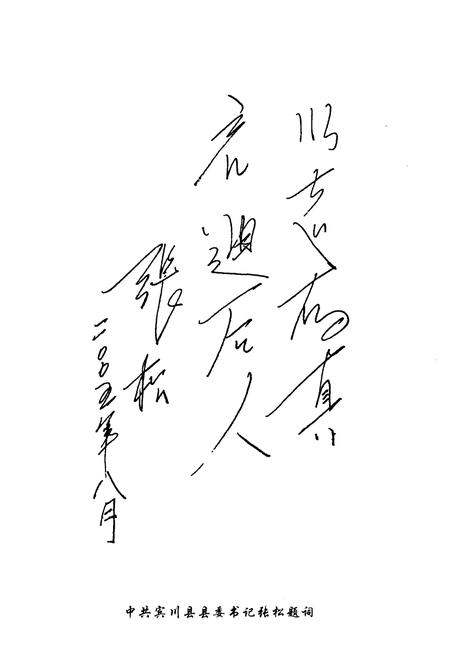 志存真
启迪后人
張松
二00五年八月
中共宾川县县委书记张松题词